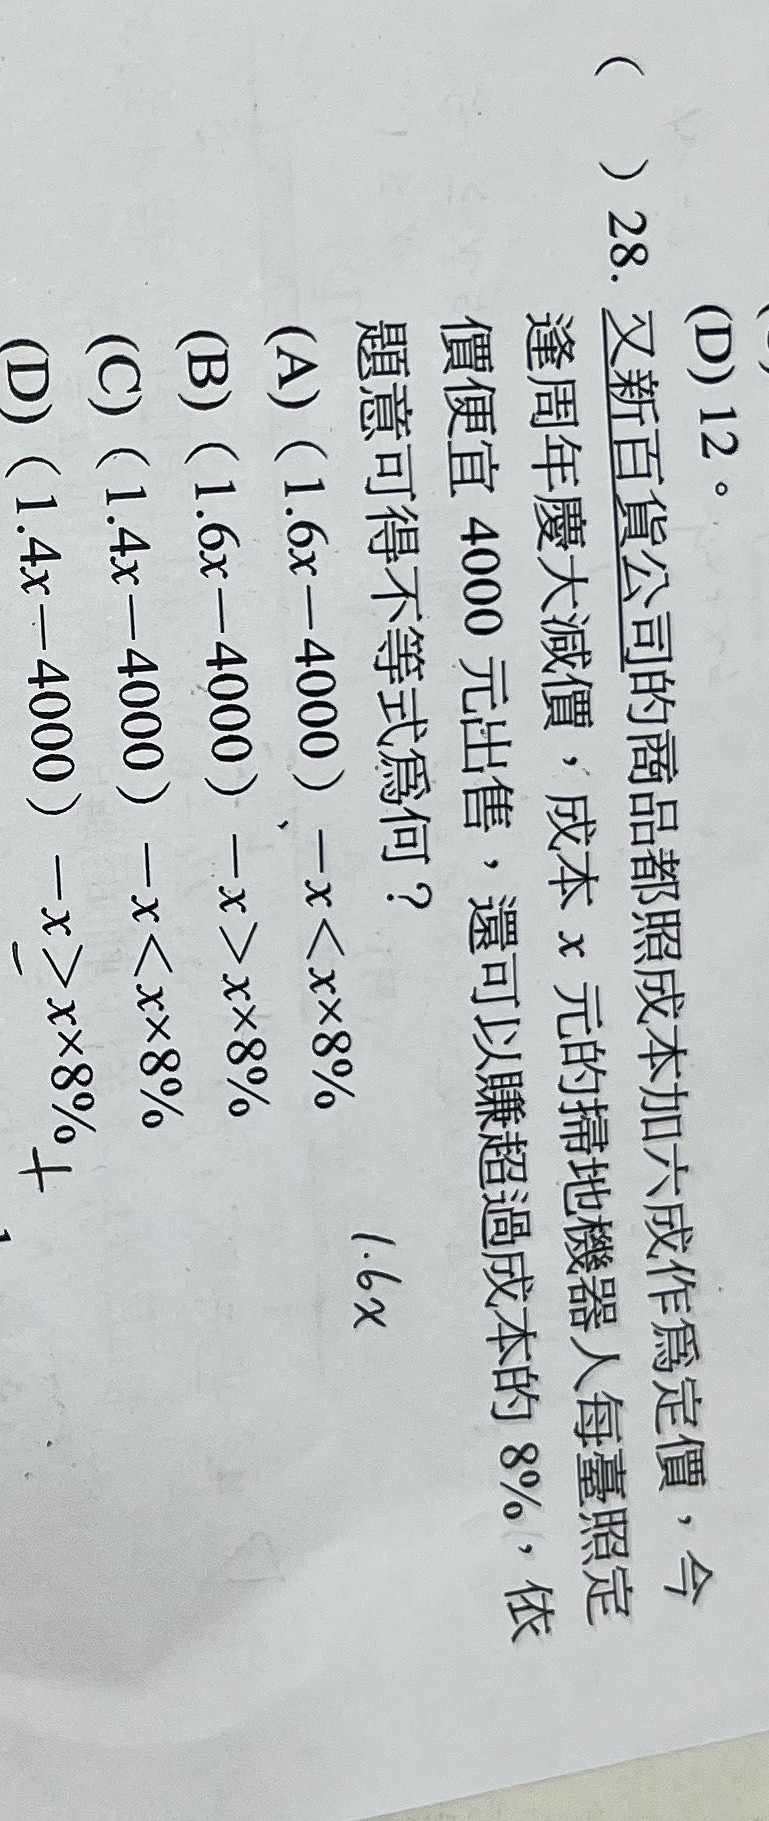 (D) 12。
(  ) 28. 又新百貨公司的商品都照成本加六成作為定價，今
逢周年慶大減價，成本 x 元的掃地機器人每臺照定
價便宜 4000 元出售，還可以賺超過成本的 8%，依
題意可得不等式為何？
(A)（1.6x－4000）－x＜x×8%
(B)（1.6x－4000）－x＞x×8%
(C)（1.4x－4000）－x＜x×8%
(D)（1.4x－4000）－x＞x×8%
1.6x